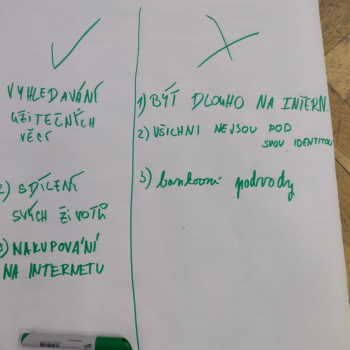 VYHLEDAVÁNÍ
UŽITEČNÝCH
VĚCÍ
2) SDÍLENÍ
SVÝCH ŽIVOTŮ
3) NAKUPOVÁNÍ
NA INTERNETU
1) BÝT DLOUHO NA INTERN.
2) VŠICHNI NEJSOU POD
SVOU IDENTITOU
3) bankovní podvody